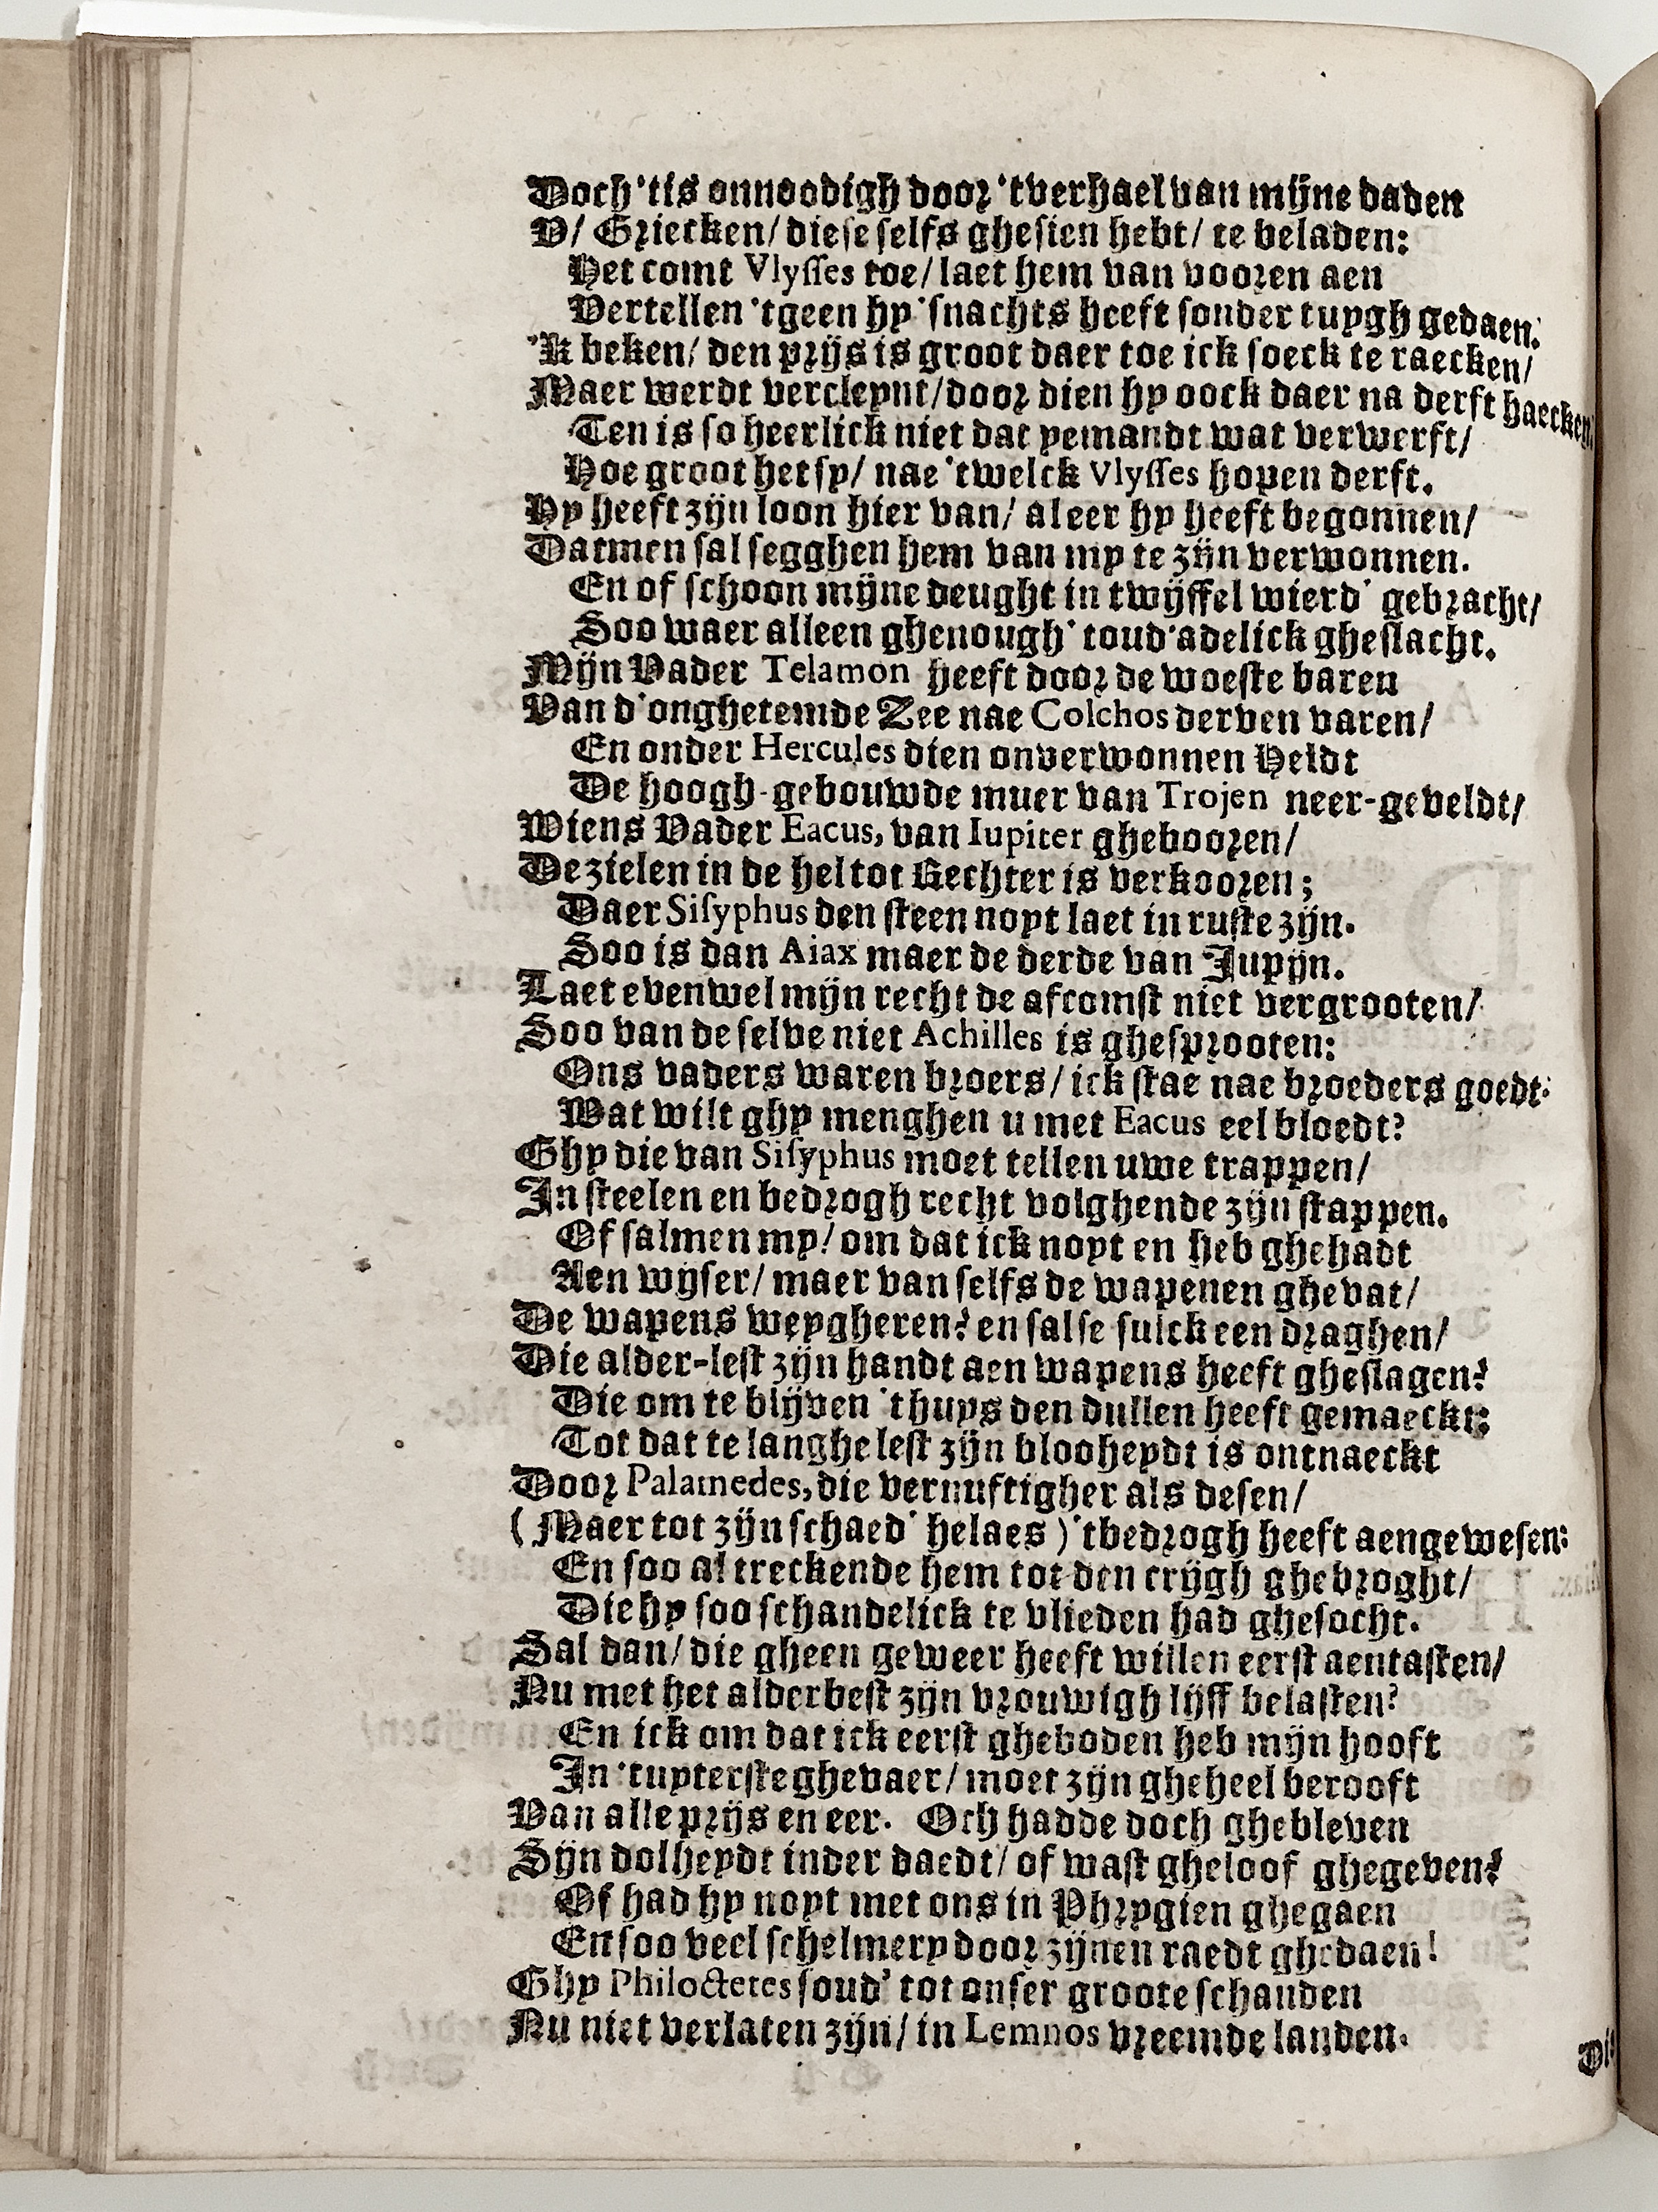 Doch 'tis onnoodigh door 'tverhael van mijne daden
V/ Griecken/ diese selfs ghesien hebt/ te beladen:
Het comt Vlysses toe/ laet hem van vooren aen
Vertellen 'tgeen hy 'snachts heeft sonder tuygh gedaen.
'K beken/ den prijs is groot daer toe ick soeck te raecken/
Maer werdt vercleynt/ door dien hy oock daer na derft haecken:
Ten is so heerlick niet dat yemandt wat verwerft/
Hoe groot het sy/ nae 'twelck Vlysses hopen derft.
Hy heeft zijn loon hier van/ al eer hy heeft begonnen/
Datmen sal segghen hem van my te zijn verwonnen.
En of schoon mijne deught in twijffel wierd' gebracht/
Soo waer alleen ghenough' toud'adelick gheslacht.
Mijn Vader Telamon heeft door de woeste baren
Van d'onghetemde Zee nae Colchos derven varen/
En onder Hercules dien onverwonnen Heldt
De hoogh-gebouwde muer van Trojen neer-geveldt/
Wiens Vader Eacus, van Iupiter ghebooren/
De zielen in de hel tot Rechter is verkooren;
Daer Sisyphus den steen noyt laet in ruste zijn.
Soo is dan Aiax maer de derde van Jupijn.
Laet evenwel mijn recht de afcomst niet vergrooten/
Soo van de selve niet Achilles is ghesprooten:
Ons vaders waren broers/ ick stae nae broeders goedt.
Wat wilt ghy menghen u met Eacus eel bloedt?
Ghy die van Sisyphus moet tellen uwe trappen/
In steelen en bedrogh recht volghende zijn stappen.
Of salmen my/ om dat ick noyt en heb ghehadt
Aen wyser/ maer van selfs de wapenen ghevat/
De wapens weygheren? en salse sulck een draghen/
Die alder-lest zijn handt aen wapens heeft gheslagen?
Die om te blijven 'thuys den dullen heeft gemaeckt:
Tot dat te langhe lest zijn blooheydt is ontnaeckt
Door Palamedes, die vernuftigher als desen/
(Maer tot zijn schaed' helaes) 'tbedrogh heeft aengewesen:
En soo al treckende hem tot den crijgh ghebroght/
Die hy soo schandelick te vlieden had ghesocht.
Sal dan/ die gheen geweer heeft willen eerst aentasten/
Nu met het alderbest zijn vrouwigh lijff belasten?
En ick om dat ick eerst gheboden heb mijn hooft
In 'tuyterste ghevaer/ moet zijn gheheel berooft
Van alle prijs en eer. Och hadde doch ghebleven
Sijn dolheydt inder daedt/ of wast gheloof ghegeven?
Of had hy noyt met ons in Phrygien ghegaen
En soo veel schelmery door zijnen raedt ghedaen!
Ghy Philoctetes soud' tot onser groote schanden
Nu niet verlaten zijn/ in Lemnos vreemde landen.